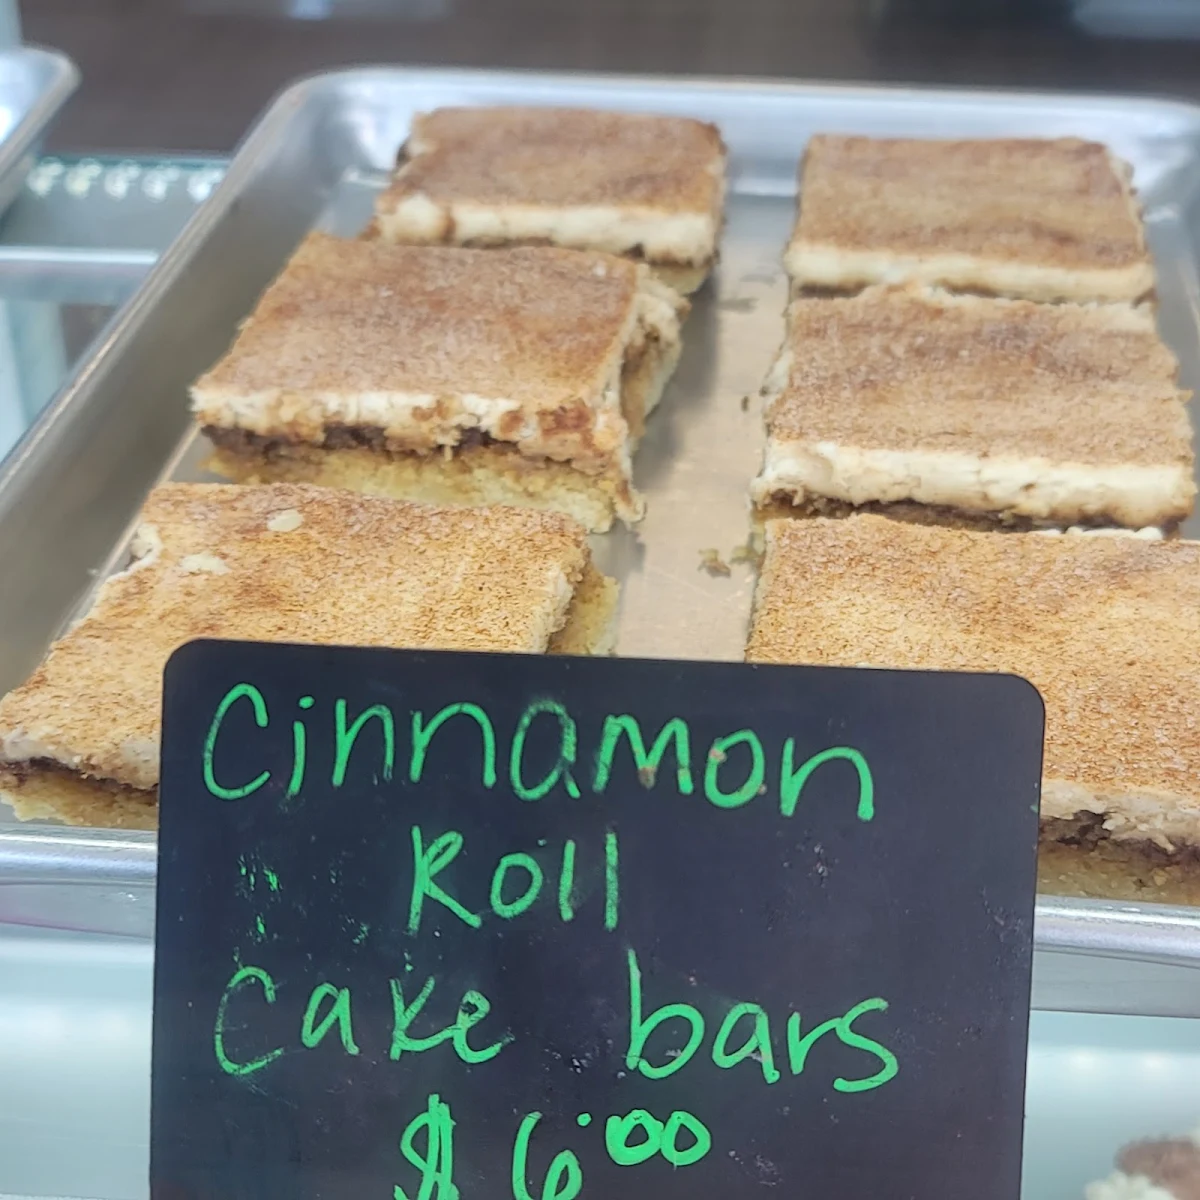 Cinnamon
Roll
Cake bars
$6.00